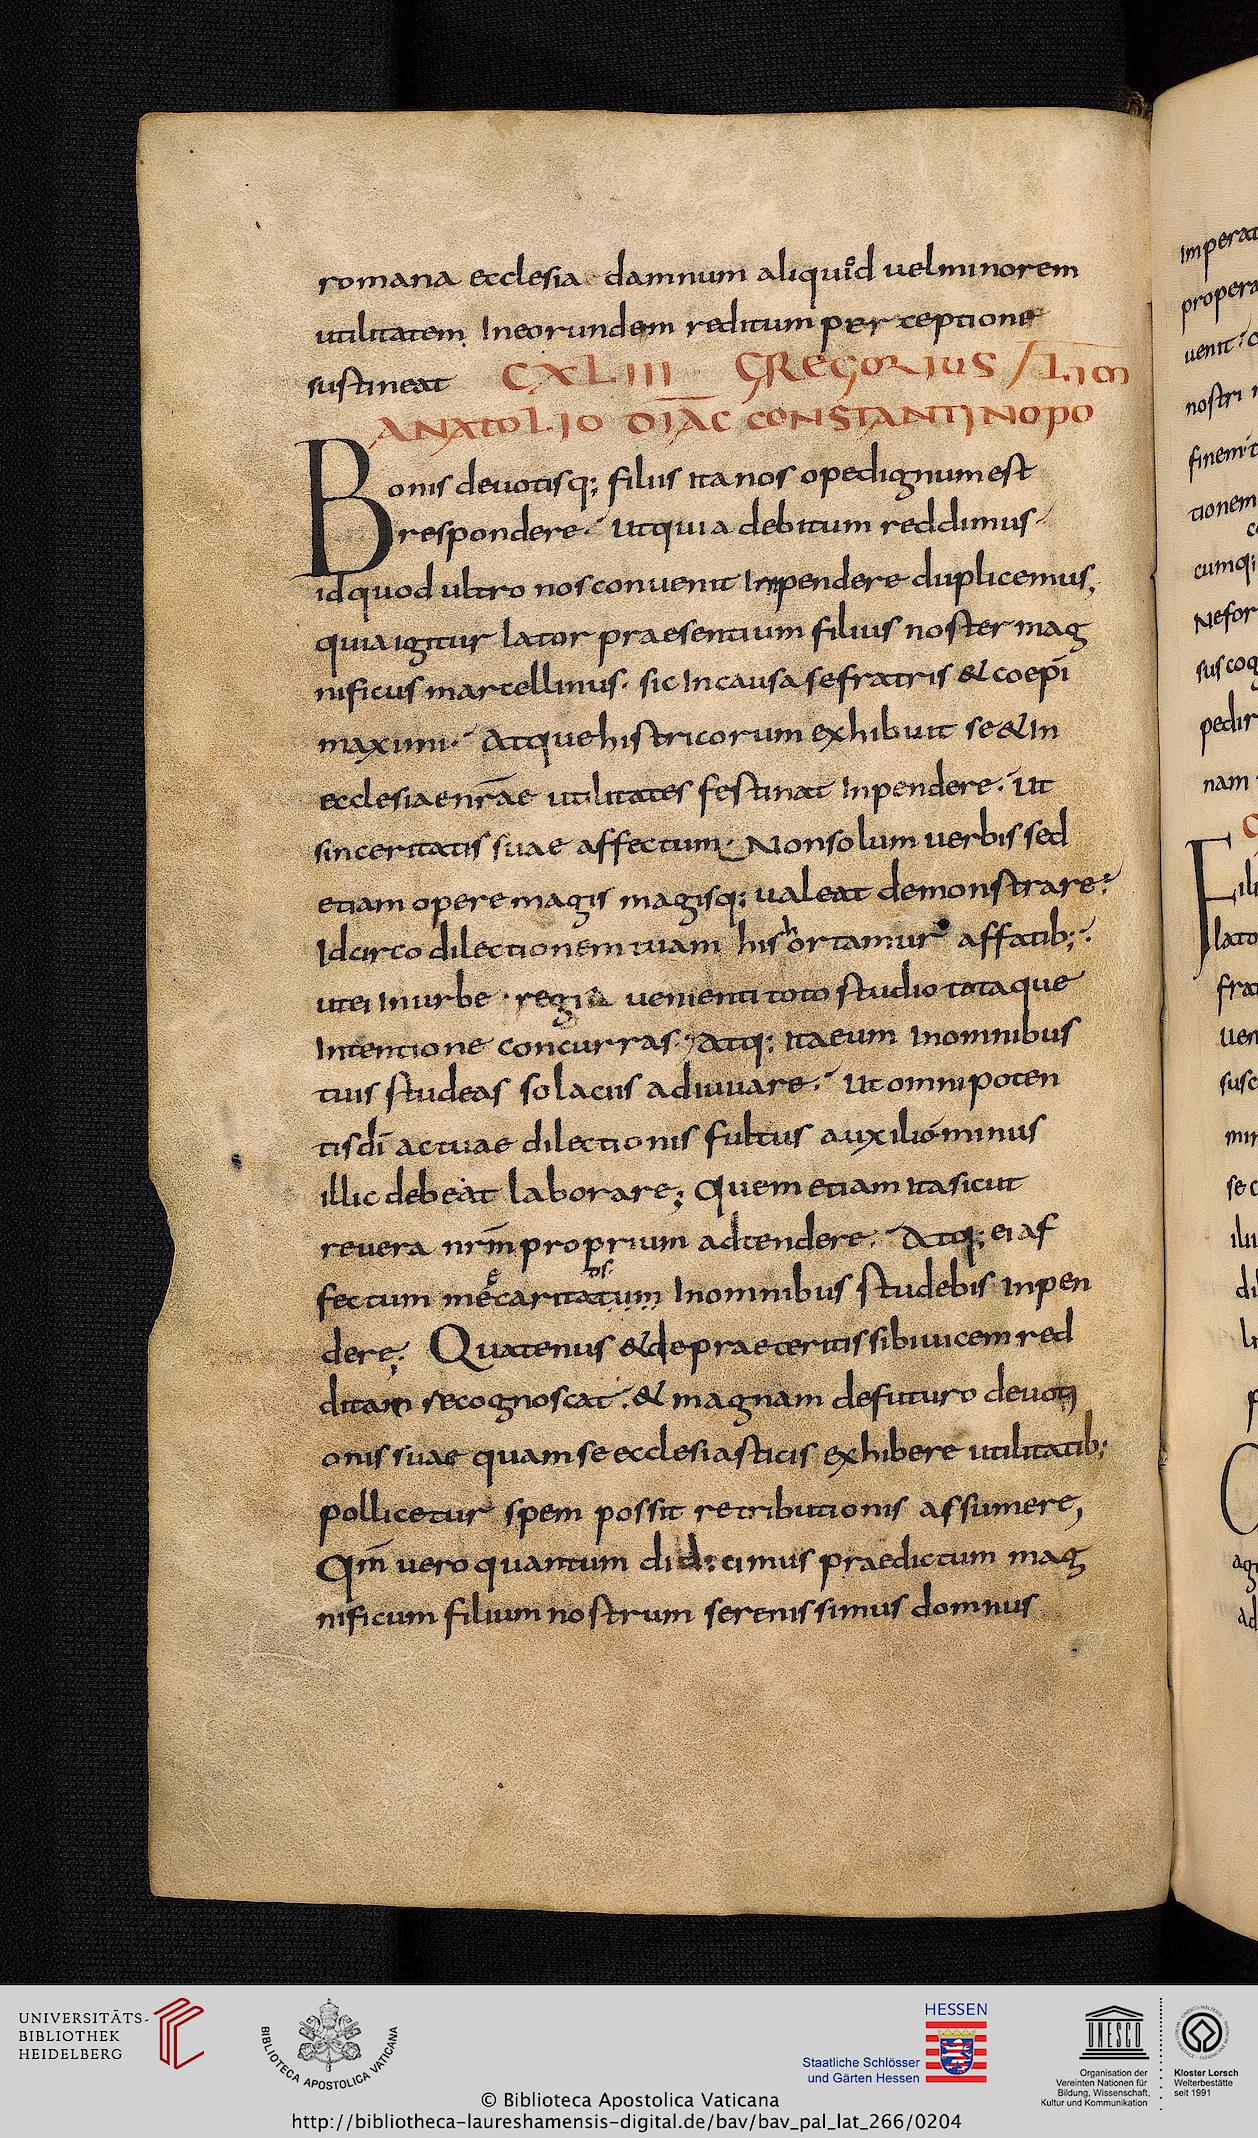 romana ecclesia damnum aliquid uelminorem
utilitatem Ineorundem reditum per ceptione
sustineat CXLIII GREGORIUS
ANATOLIO DIAC CONSTANTINOPO
Bonis deuotisq; filiis ita nos opedignum est
respondere. Utquia debitum reddimus.
idquod ultro nos conuenit Inpendere duplicemus,
quia igitur lator praesentium filius noster mag
nificus marcellinus. sic Incausa sefratris & coepi
maximi. Atque histricorum exhibuit se & In
ecclesiae nrae utilitates festinat Inpendere. Ut
sinceritatis suae affectum. Nonsolum uerbis sed
etiam opere magis magisq; ualeat demonstrare.
Idcirco dilectionem tuam his hortamur affatib;.
utei Inurbe regia uenienti toto studio totaque
Intentione concurras. Atq; Ita eum Inomnibus
tuis studeas solaciis adiuuare. Ut omnipoten
tis di ac tuae dilectionis fultus auxilio minus
illic debeat laborare; Quem etiam ita sicut
reuera nrm proprium adtendere. Atq; ei af
fectum me caritatum Inomnibus studebis inpen
os.
dere; Quatenus & depraeteritis sibi uicem red
ditam recognoscat. & magnam defuturo deuoti
onis suae quam se ecclesiasticis exhibere utilitatib;
pollicetur spem possit retributionis assumere,
Qm uero quantum praedictum mag
nificum filium nostrum serenissimus domnus
imperat
propera
uenit
nostri
finem
tionem
cumq;
Nefor
sus cog
pedir
nam
Fili
lato
frat
uen
susc
min
se c
dil
ag
ad
UNIVERSITÄTS-
BIBLIOTHEK
HEIDELBERG
BIBLIOTECA APOSTOLICA VATICANA
HESSEN
Staatliche Schlösser
und Gärten Hessen
UNESCO
Organisation der
Vereinten Nationen für
Bildung, Wissenschaft,
Kultur und Kommunikation
Kloster Lorsch
Welterbestätte
seit 1991
© Biblioteca Apostolica Vaticana
http://bibliotheca-laureshamensis-digital.de/bav/bav_pal_lat_266/0204